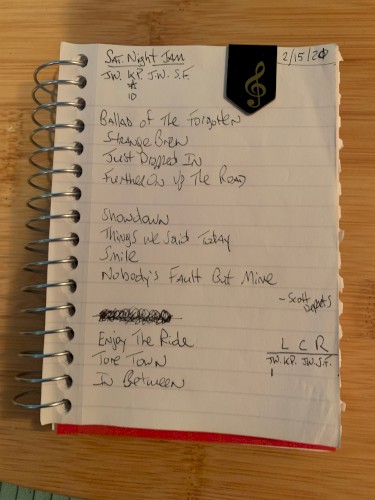 Sat. Night Jam 2/15/20
J.W. K.P. J.W. S.F.
10
Ballad of The Forgotten
Strange Brew
Just Dropped In
Further On Up The Road
Showdown
Things We Said Today
Smile
Nobody's Fault But Mine
- Scott Departs
Enjoy The Ride
Tore Town
In Between
L C R
J.W. K.P. J.W. S.F.
1